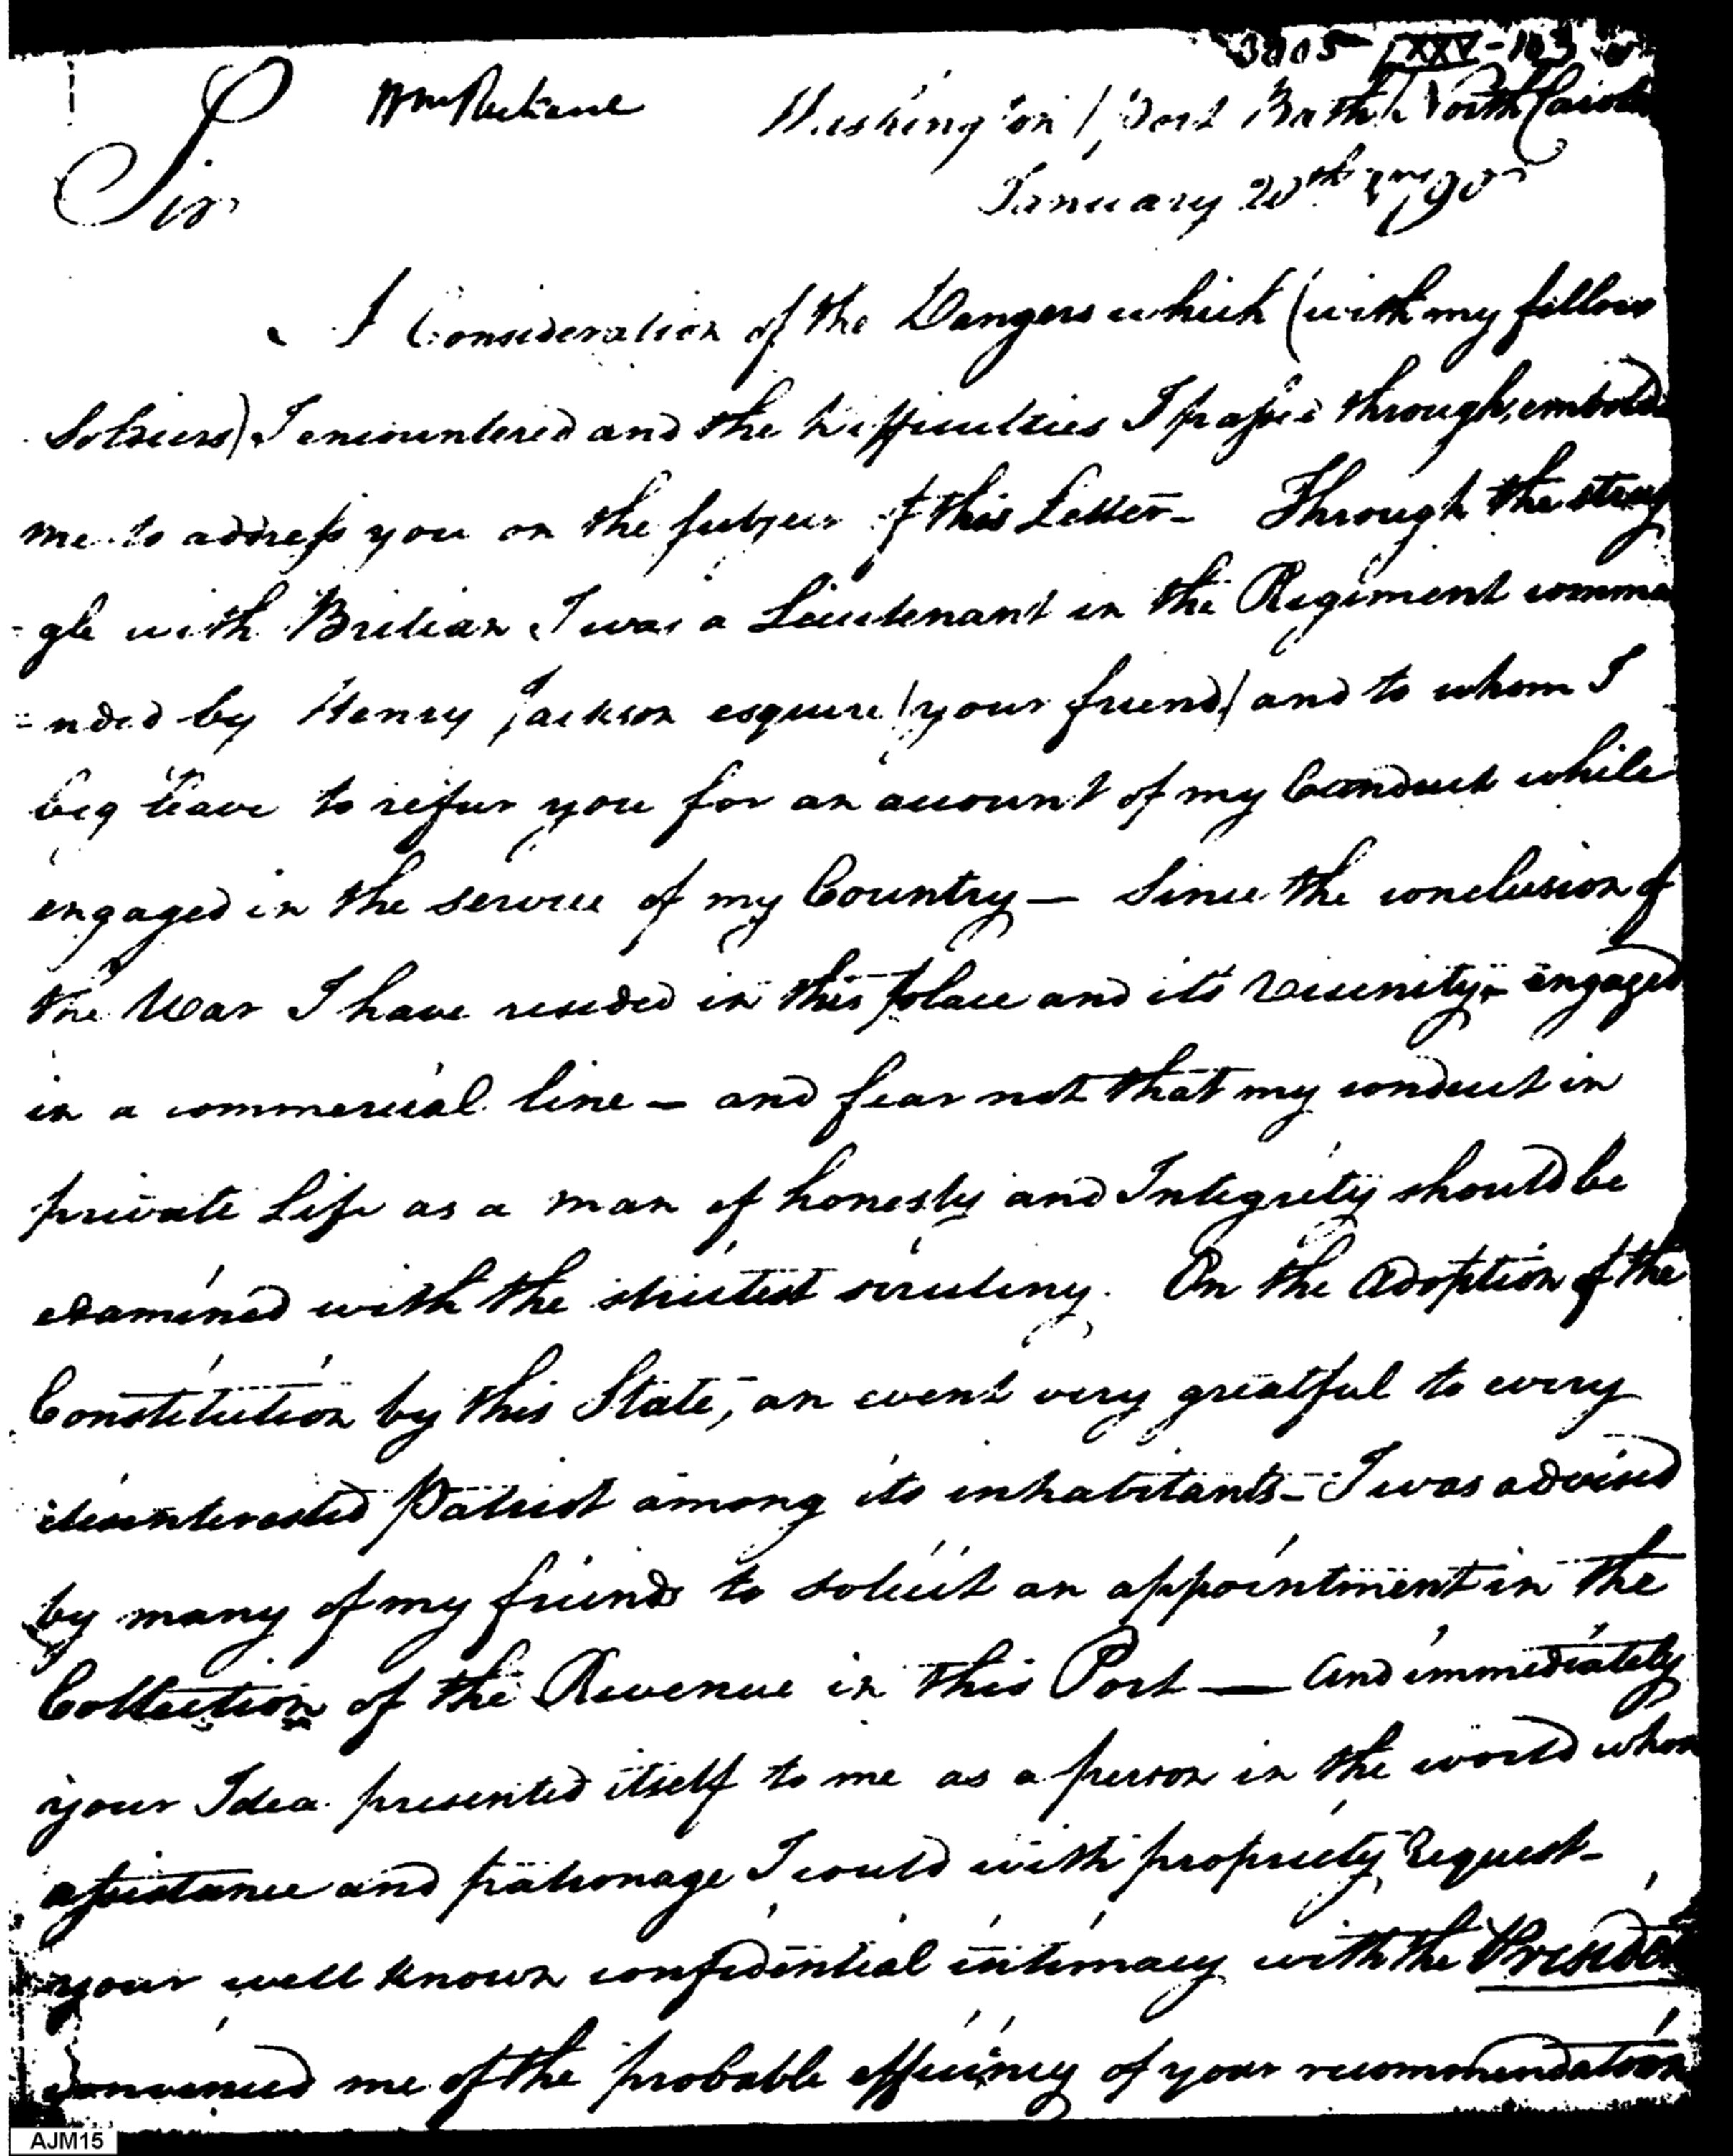 3005 LXXV-103
Wm
Washington / Port Bath / North Carolin
Sir
January 20th 1790
A Consideration of the Dangers which (with my fellow
Soldiers) I encountered and the difficulties I passed through, embold
me to address you on the subject of this Letter - Through the strug
- gle with Britian I was a Lieutenant in the Regiment comma
= nded by Henry Jackson esquire / your friend / and to whom I
beg leave to refur you for an account of my Conduct while
engaged in the service of my Country — Since the conclusion of
the War I have resided in this place and its vicinity - engaged
in a commercial line - and fear not that my conduct in
private Life as a man of honesty and Integrity should be
examined with the strictest scrutiny. On the Adoption of the
Constitution by this State, an event very greatful to every
disinterested Patriot among its inhabitants - I was advised
by many of my friends to solicit an appointment in the
Collection of the Revenue in this Port — And immediately
your Idea presented itself to me as a person in the world whos
assistance and patronage I could with propriety Request -
your well known confidential intimacy with the Presiden
convinced me of the probable efficincy of your recommendation
AJM15